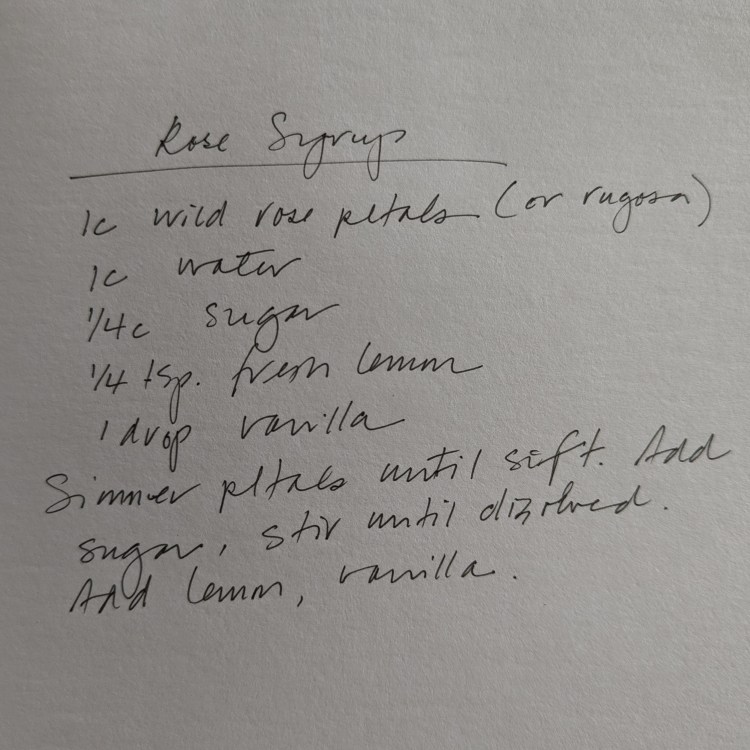 Rose Syrup
1c wild rose petals (or rugosa)
1c water
1/4c sugar
1/4 tsp. fresh lemon
1 drop vanilla
Simmer petals until soft. Add
sugar, stir until dizolved.
Add lemon, vanilla.